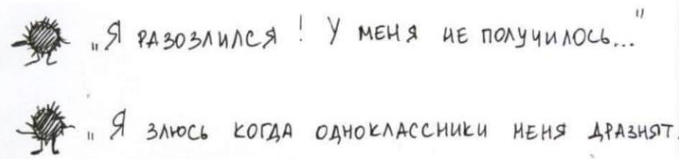 „Я РАЗОЗЛИЛСЯ! У МЕНЯ НЕ ПОЛУЧИЛОСЬ..."
„Я ЗЛЮСЬ КОГДА ОДНОКЛАССНИКИ МЕНЯ ДРАЗНЯТ.